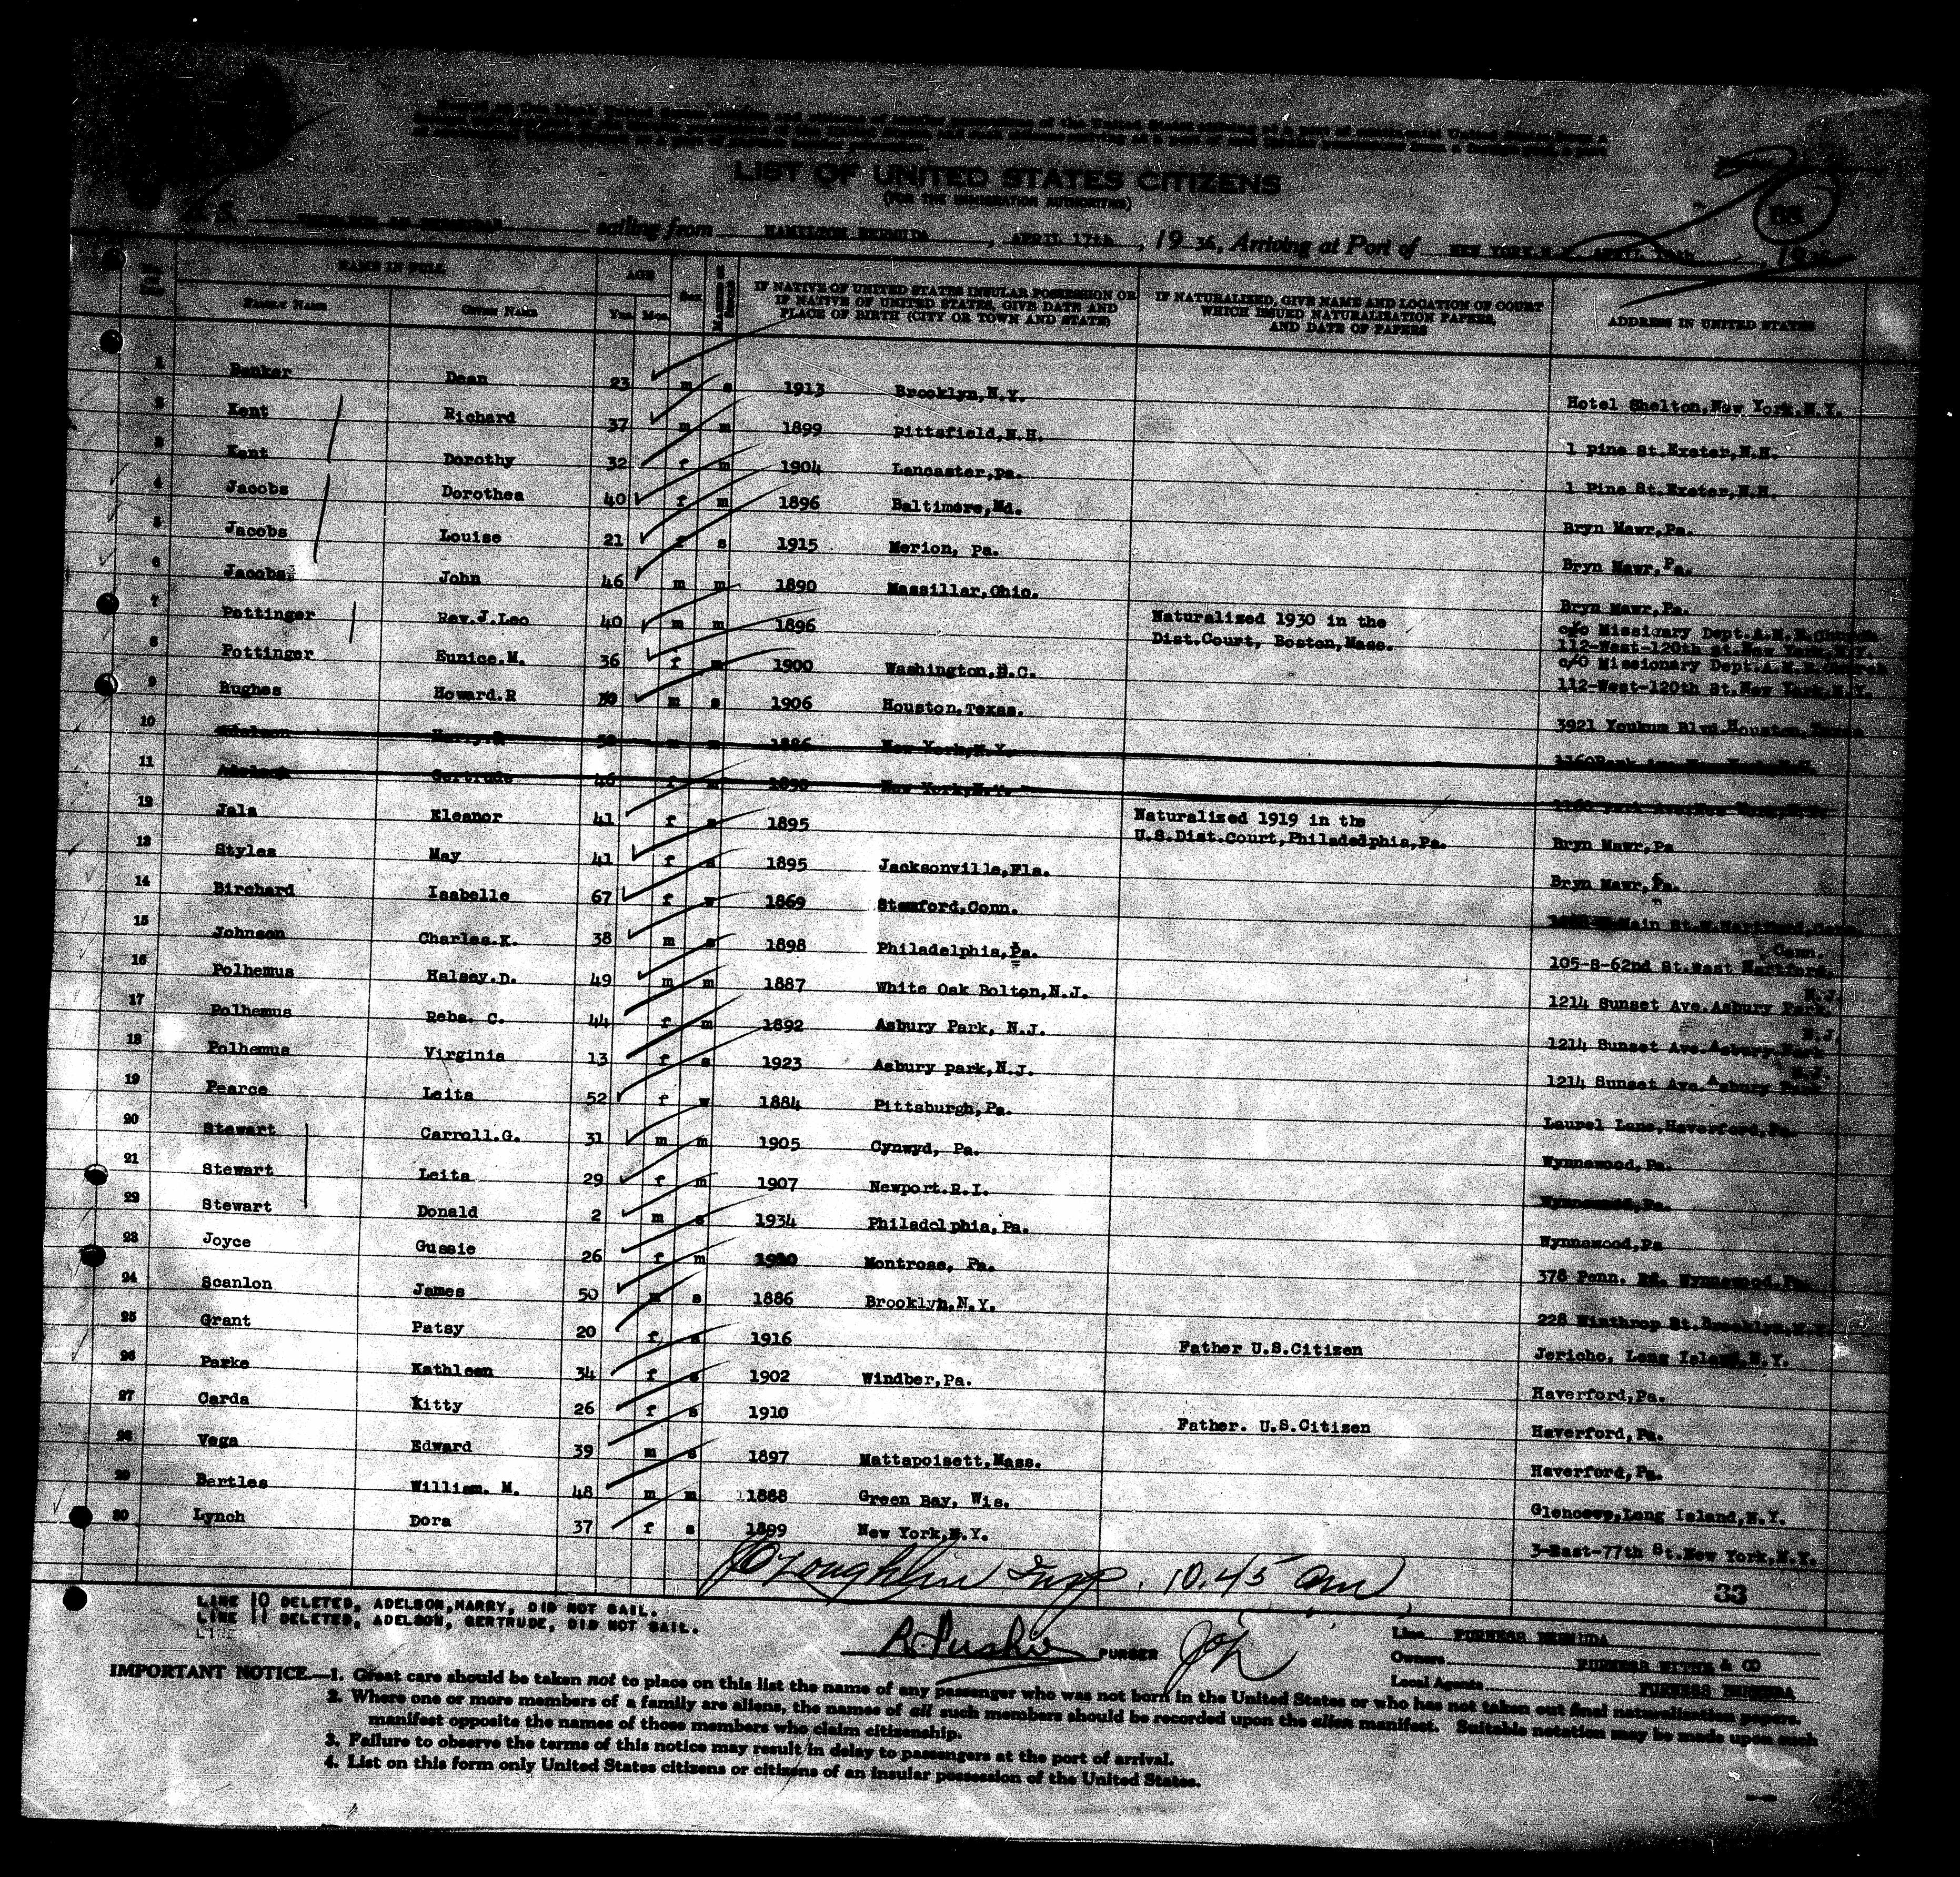 LIST OF UNITED STATES CITIZENS
(FOR THE IMMIGRATION AUTHORITIES)
S.S. sailing from HAMILTON BERMUDA, APRIL 17th, 1936, Arriving at Port of NEW YORK.N.Y. APRIL 1936
33
No. on List NAME IN FULL AGE Sex Married or Single IF NATIVE OF UNITED STATES INSULAR POSSESSION OR IF NATIVE OF UNITED STATES, GIVE DATE AND PLACE OF BIRTH (CITY OR TOWN AND STATE) IF NATURALIZED, GIVE NAME AND LOCATION OF COURT WHICH ISSUED NATURALIZATION PAPERS, AND DATE OF PAPERS ADDRESS IN UNITED STATES
FAMILY NAME GIVEN NAME Yrs. Mos.
1 Banker Dean 23 m s 1913 Brooklyn,N.Y. Hotel Shelton,New York.N.Y.
2 Kent Richard 37 m m 1899 Pittsfield,N.H. 1 pine St.Exeter,N.H.
3 Kent Dorothy 32 f m 1904 Lancaster,pa. 1 Pine St.Exeter,N.H.
4 Jacobs Dorothea 40 f m 1896 Baltimore,Md. Bryn Mawr,Pa.
5 Jacobs Louise 21 f s 1915 Merion, Pa. Bryn Mawr,Pa.
6 Jacobs John 46 m m 1890 Massillar,Ohio. Bryn Mawr,Pa.
7 Pottinger Rev.J.Leo 40 m m 1896 Naturalized 1930 in the Dist.Court, Boston,Mass. c/o Missionary Dept.A.M.E.Church 112-West-120th St.New York.N.Y.
8 Pottinger Eunice.M. 36 f m 1900 Washington,D.C. c/o Missionary Dept.A.M.E.Church 112-West-120th St.New York.N.Y.
9 Hughes Howard.R 30 m s 1906 Houston,Texas. 3921 Yoakum Blvd.Houston,Texas
10 Adelson Harry. 50 m m 1886 New York,N.Y. 1160Park Ave.New York,N.Y.
11 Adelson Gertrude 46 f m 1890 New York,N.Y. 1160 Park Ave.New York,N.Y.
12 Jala Eleanor 41 f s 1895 Naturalized 1919 in the U.S.Dist.Court,Philadedphia,Pa. Bryn Mawr,Pa
13 Styles May 41 f s 1895 Jacksonville,Fla. Bryn Mawr,Pa.
14 Birchard Isabelle 67 f w 1869 Stamford,Conn. Main St.W.Hartford,Conn.
15 Johnson Charles.K. 38 m s 1898 Philadelphia,Pa. 105-S-62nd St.West Hartford. Conn.
16 Polhemus Halsey.D. 49 m m 1887 White Oak Bolton,N.J. 1214 Sunset Ave.Asbury Park. N.J.
17 Polhemus Reba. C. 44 f m 1892 Asbury Park, N.J. 1214 Sunset Ave.Asbury.Park N.J.
18 Polhemus Virginia 13 f s 1923 Asbury park,N.J. 1214 Sunset Ave.Asbury Park N.J.
19 Pearce Leita 52 f w 1884 Pittsburgh,Pa. Laurel Lane,Haverford,Pa.
20 Stewart Carroll.G. 31 m m 1905 Cynwyd, Pa. Wynnewood,Pa.
21 Stewart Leita 29 f m 1907 Newport.R.I. Wynnewood,Pa.
22 Stewart Donald 2 m s 1934 Philadelphia,Pa. Wynnewood,Pa
23 Joyce Gussie 26 f m Montrose, Pa. 378 Penn. Rd. Wynnewood,Pa.
24 Scanlon James 50 m s 1886 Brooklyn,N.Y. 228 Winthrop St.Brooklyn,N.Y.
25 Grant Patsy 20 f s 1916 Father U.S.Citizen Jericho, Long Island,N.Y.
26 Parke Kathleen 34 f s 1902 Windber,Pa. Haverford,Pa.
27 Carda Kitty 26 f s 1910 Father. U.S.Citizen Haverford,Pa.
28 Vega Edward 39 m s 1897 Mattapoisett,Mass. Haverford,Pa.
29 Bertles William. M. 48 m m 1888 Green Bay, Wis. Glencove,Long Island,N.Y.
30 Lynch Dora 37 f s 1899 New York,N.Y. 3-East-77th St.New York,N.Y.
O'Loughlin Insp. 10.45 am
33
LINE 10 DELETED, ADELSON,HARRY, DID NOT SAIL.
LINE 11 DELETED, ADELSON, GERTRUDE, DID NOT SAIL.
LINE
PURSER
Line FURNESS BERMUDA
Owners FURNESS WITHY & CO
Local Agents FURNESS BERMUDA
IMPORTANT NOTICE.—1. Great care should be taken not to place on this list the name of any passenger who was not born in the United States or who has not taken out final naturalization papers.
2. Where one or more members of a family are aliens, the names of all such members should be recorded upon the alien manifest. Suitable notation may be made upon such
manifest opposite the names of those members who claim citizenship.
3. Failure to observe the terms of this notice may result in delay to passengers at the port of arrival.
4. List on this form only United States citizens or citizens of an insular possession of the United States.